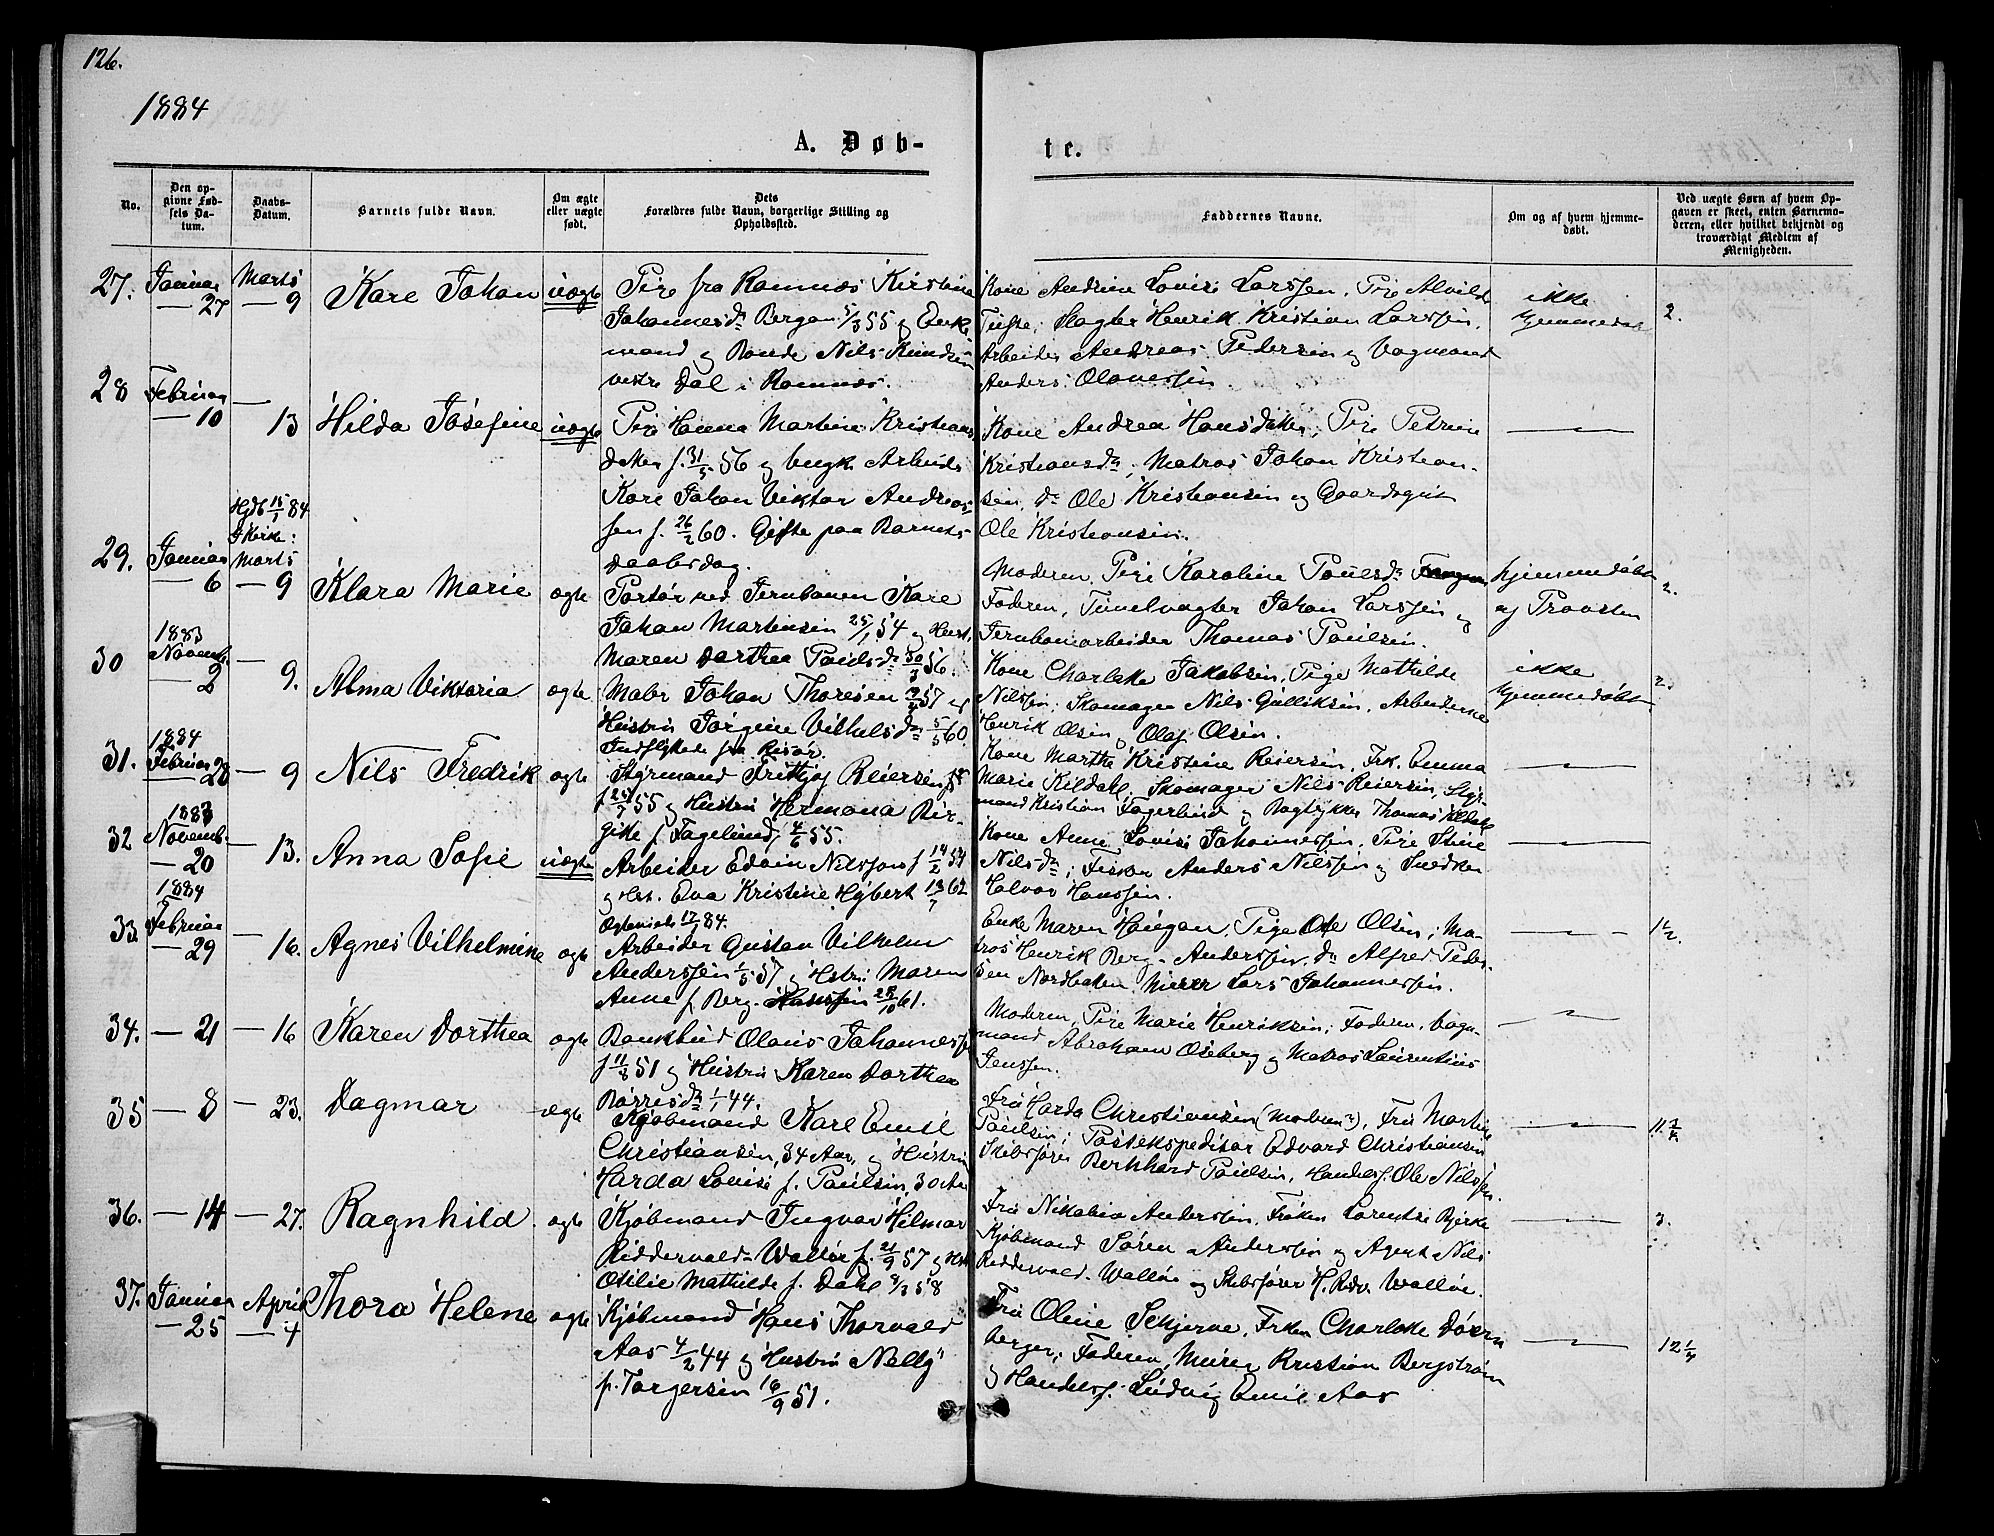 126.
1884
A. Døb-
te.
No.
Den op-
givne Fød-
sels Da-
tum.
Daabs-
Datum.
Barnets fulde Navn.
Om ægte
eller uægte
født.
Dets
Forældres fulde Navn, borgerlige Stilling og
Opholdssted.
Faddernes Navne.
Om og af hvem hjemme-
døbt.
Ved uægte Børn af hvem Op-
gaven er skeet, enten Barnemo-
deren, eller hvilket bekjendt og
troværdigt Medlem af
Menigheden.
27.
Januar
— 27
Marts
— 9
Karl Johan
uægte
Pige fra Ramnæs Kirstine
Johannesdr Bergan 5/3 55 og Enke
mand og Bonde Nils Knudsen
vestre Dal i Ramnæs.
Kone Andrine Lovise Larssen, Pige Alvilde
Tufte; Slagter Henrik Kristian Larssen,
Arbeider Andreas Pedersen og Vognmand
Anders Olavessen.
ikke
hjemmedøbt
2.
28
Februar
— 10
—
13
Hilda Josefine
uægte
Pige Hanna Martine Kristians
datter f. 31/5 56 og Arbeider
Karl Johan Viktor Andreas-
sen f. 26/2 60. Gifte paa Barnets
Daabsdag.
Kone Andrea Hansdatter, Pige Petrine
Kristiansdr; Matros Johan Kristian-
sen, do Ole Kristiansen og Gaardsgut
Ole Kristiansen.
—
29.
Januar
— 6
Hjdb 15/1 84
I Kirke:
Marts
— 9
Klara Marie
ægte
Portør ved Jernbanen Karl
Johan Martinsen 25/1 54 og Hust.
Maren Dorthea Paulsdr 30/3 56.
Moderen, Pige Karoline Paulsdr
Faderen, Tunelvagter Johan Larssen og
Jernbanearbeider Thomas Paulsen.
hjemmedøbt
af Provsten
2.
30
1883
Novemb.
— 2
—
9.
Alma Viktoria
ægte
Maler Johan Thoresen 57 og
Hustru Jørgine Vilhelmsdr 5/5 60.
Indflyttede fra Risør.
Kone Charlotte Jakobsen, Pige Mathilde
Nilssen; Skomager Nils Gulliksen, Arbeiderne
Henrik Olsen og Olaf Olsen.
ikke
hjemmedøbt
2.
31.
1884
Februar
— 28
— 9
Nils Fredrik
ægte
Styrmand Frithjof Reiersen
f. 55 og Hustru Hermana Bir-
gitte f. Fagelund, 4/6 55.
Kone Marthe Kristine Reiersen, Frk. Emma
Marie Kildahl, Skomager Nils Reiersen, Styr-
mand Kristian Fagerlund og Bogtrykker Thomas Kildahl
—
32
1883
Novemb.
— 20
— 13.
Anna Sofie
uægte
Arbeider Edvin Nilsson f 14/2 54
og Hst. Eva Kristine Hybert 13/7 62
Ægteviede 17/1 84.
Kone Anne Lovise Johannessen, Pige Stine
Nilsdr; Fisker Anders Nilssen og Snedker
Halvor Hanssen.
—
33.
1884
Februar
— 29
— 16.
Agnes Vilhelmine
ægte
Arbeider Gustav Vilhelm
Anderssen 1/5 57 og Hstru Maren
Anne f. Berg. 28/10 61.
Enke Maren Haugan, Pige Olsen; Ma-
tros Henrik Berg-Anderssen, do Alfred Peder-
sen Nordbaken, Murer Lars Johannessen.
—
1½.
34.
— 21
— 16
Karen Dorthea
ægte
Bankbud Olaus Johannessen
f 11/8 51 og Hustru Karen Dorthea
Børresdr 1/1 44.
Moderen, Pige Marie Henriksen; Faderen, Vogn-
mand Abraham Oseberg og Matros Laurentius
Jenssen.
—
35
— 8
— 23.
Dagmar
ægte
Kjøbmand Karl Emil
Christiansen, 34 Aar, og Hustru
Harda Louise f. Paulsen, 30 Aar
Fru Harda Christiansen (Moderen), Fru Martine
Paulsen; Postekspeditør Edvard Christiansen
Skibsfører Bernhard Paulsen, Handelsf. Ole Nilssen.
—
36.
— 14
— 27.
Ragnhild
ægte
Kjøbmand Ingvar Hilmar
Riddervald-Walløe f. 21/9 57 og Hst
Otilie Mathilde f. Dahl 9/3 58
Fru Nikoline Anderssen, Frøken Lorentse Bjerke
Kjøbmand Søren Anderssen og Agent Nils
Riddervold-Walløe og Skibsfører H. Ridv. Walløe.
—
3.
37.
Januar
— 25
April
— 4
Thora Helene
ægte
Kjøbmand Hans Thorvald
Aas 4/2 44 og Hustru Nelly
f. Torgersen 16/9 51.
Fru Oline Schjerve, Frken Charlotte Dørn-
berger; Faderen, Murer Kristian Bergstrøm
og Handelsf. Ludvig Emil Aas
—
12¼